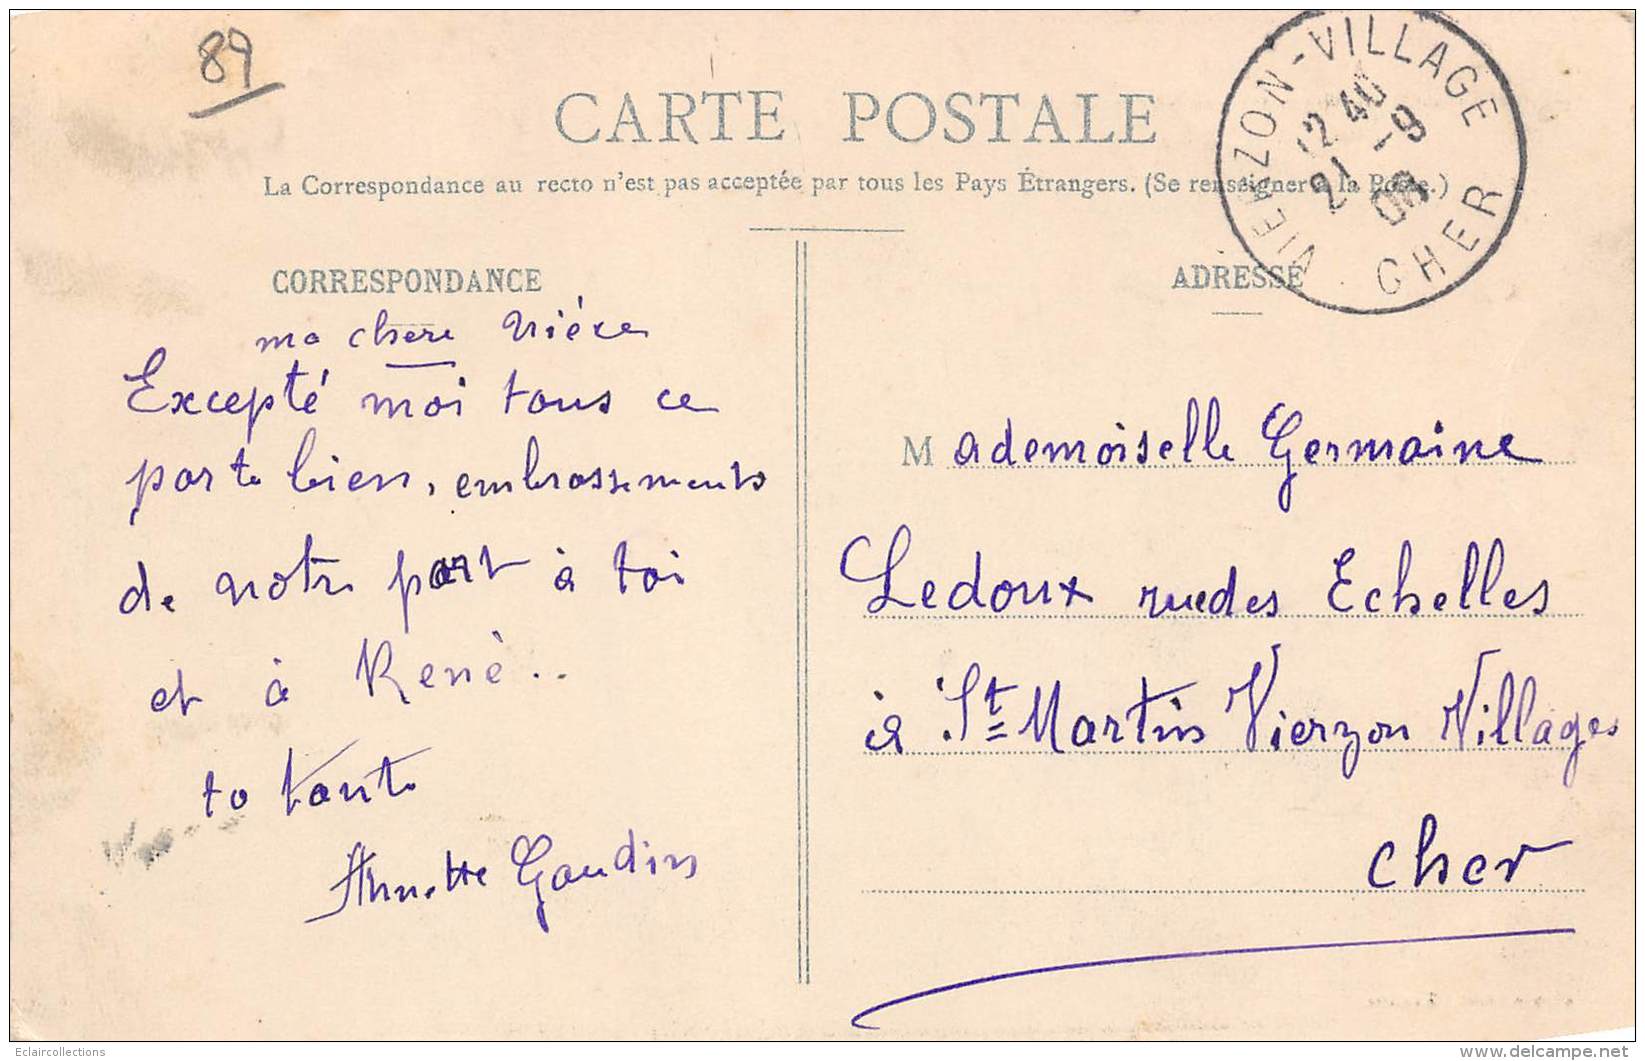 89
CARTE POSTALE
La Correspondance au recto n'est pas acceptée par tous les Pays Étrangers. (Se renseigner à la Poste.)
VIERZON-VILLAGE
12 40
21 -9
08
CHER
CORRESPONDANCE
ma chere Niéce
Excepté moi tous ce
porte bien, embrassements
de notre part à toi
et à Renè..
ta tante
Annette Gaudin
ADRESSE
Mademoiselle Germaine
Ledoux rue des Echelles
à St Martin Vierzon Villages
Cher
Eclaircollections
delcampe.net